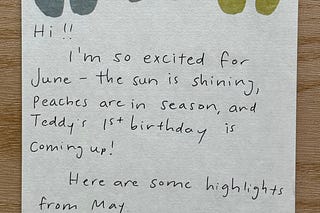 Hi !!
I'm so excited for
June - the sun is shining,
Peaches are in season, and
Teddy's 1st birthday is
coming up!
Here are some highlights
from May